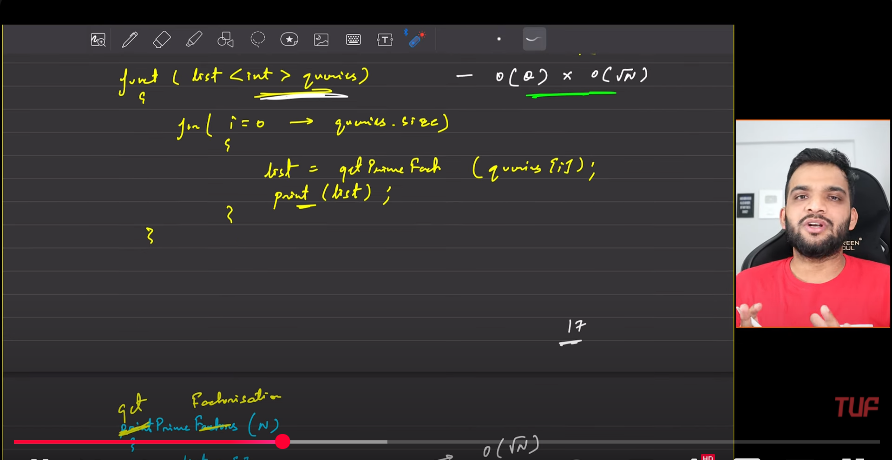 funct ( list <int> queries) — O(Q) × O(√N)
{
for( i=0 → queries.size)
{
list = getPrimeFact (queries[i]);
print (list) ;
}
}
17
get Factorisation
printPrimeFactors (N)
{
O(√N)
TUF
HD